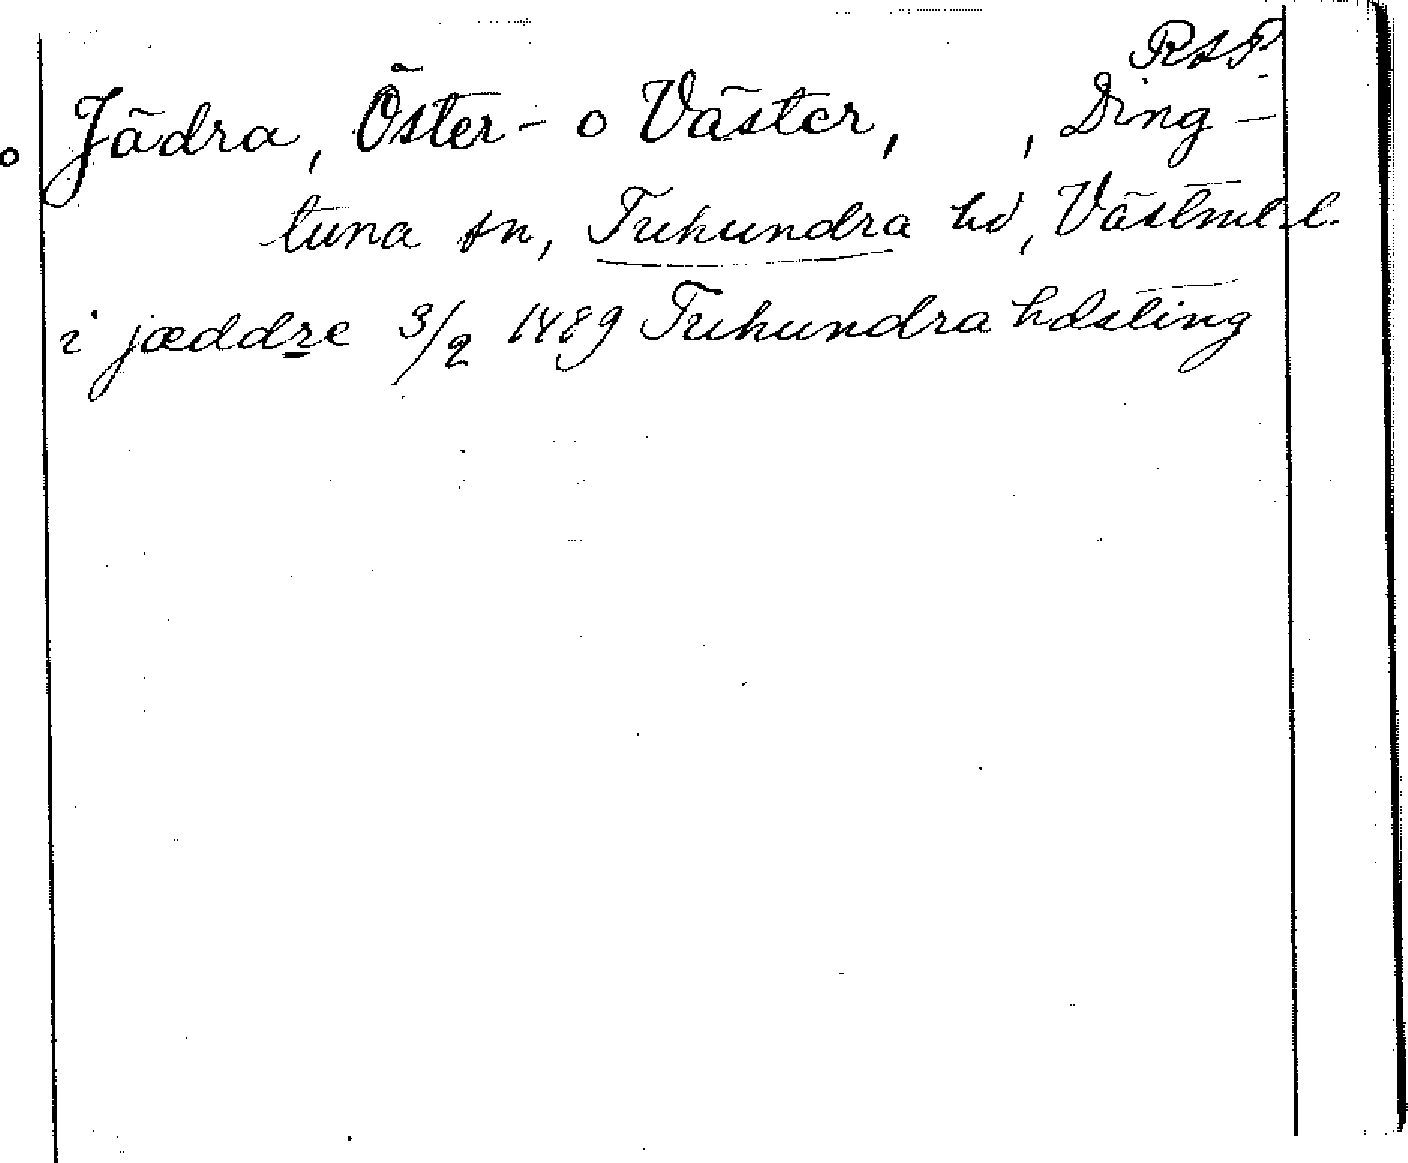 RAP
Jädra, Öster- o Väster, , Ding-
tuna sn, Tuhundra hd, Västml.l.
i jæddre 3/2 1489 Tuhundra hdsting